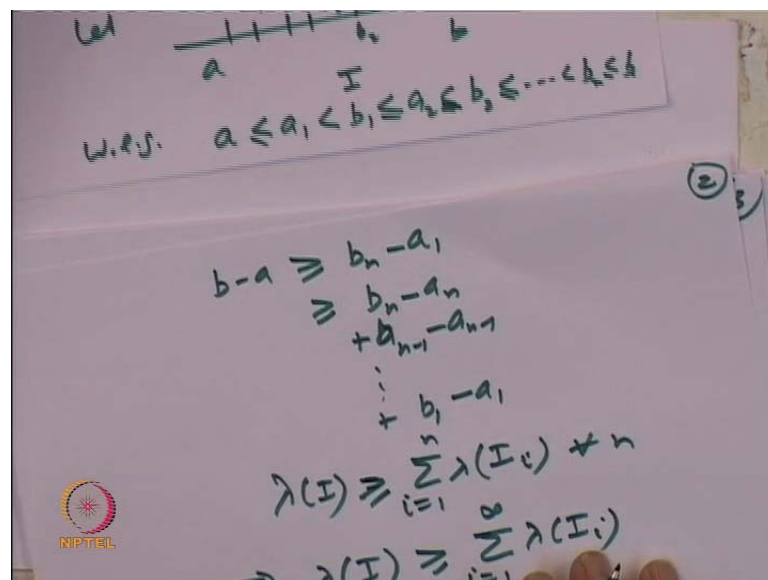 Let
a b₁ b
I
w.l.g. a ≤ a₁ < b₁ ≤ a₂ ≤ b₂ ≤ ... < bₙ ≤ b
② 3
b-a ≥ bₙ - a₁
≥ bₙ - aₙ
+ bₙ₋₁ - aₙ₋₁
⋮
+ b₁ - a₁
λ(I) ≥ ∑ᵢ₌₁ⁿ λ(Iᵢ) ∀ n
⇒ λ(I) ≥ ∑ᵢ₌₁^∞ λ(Iᵢ)
NPTEL